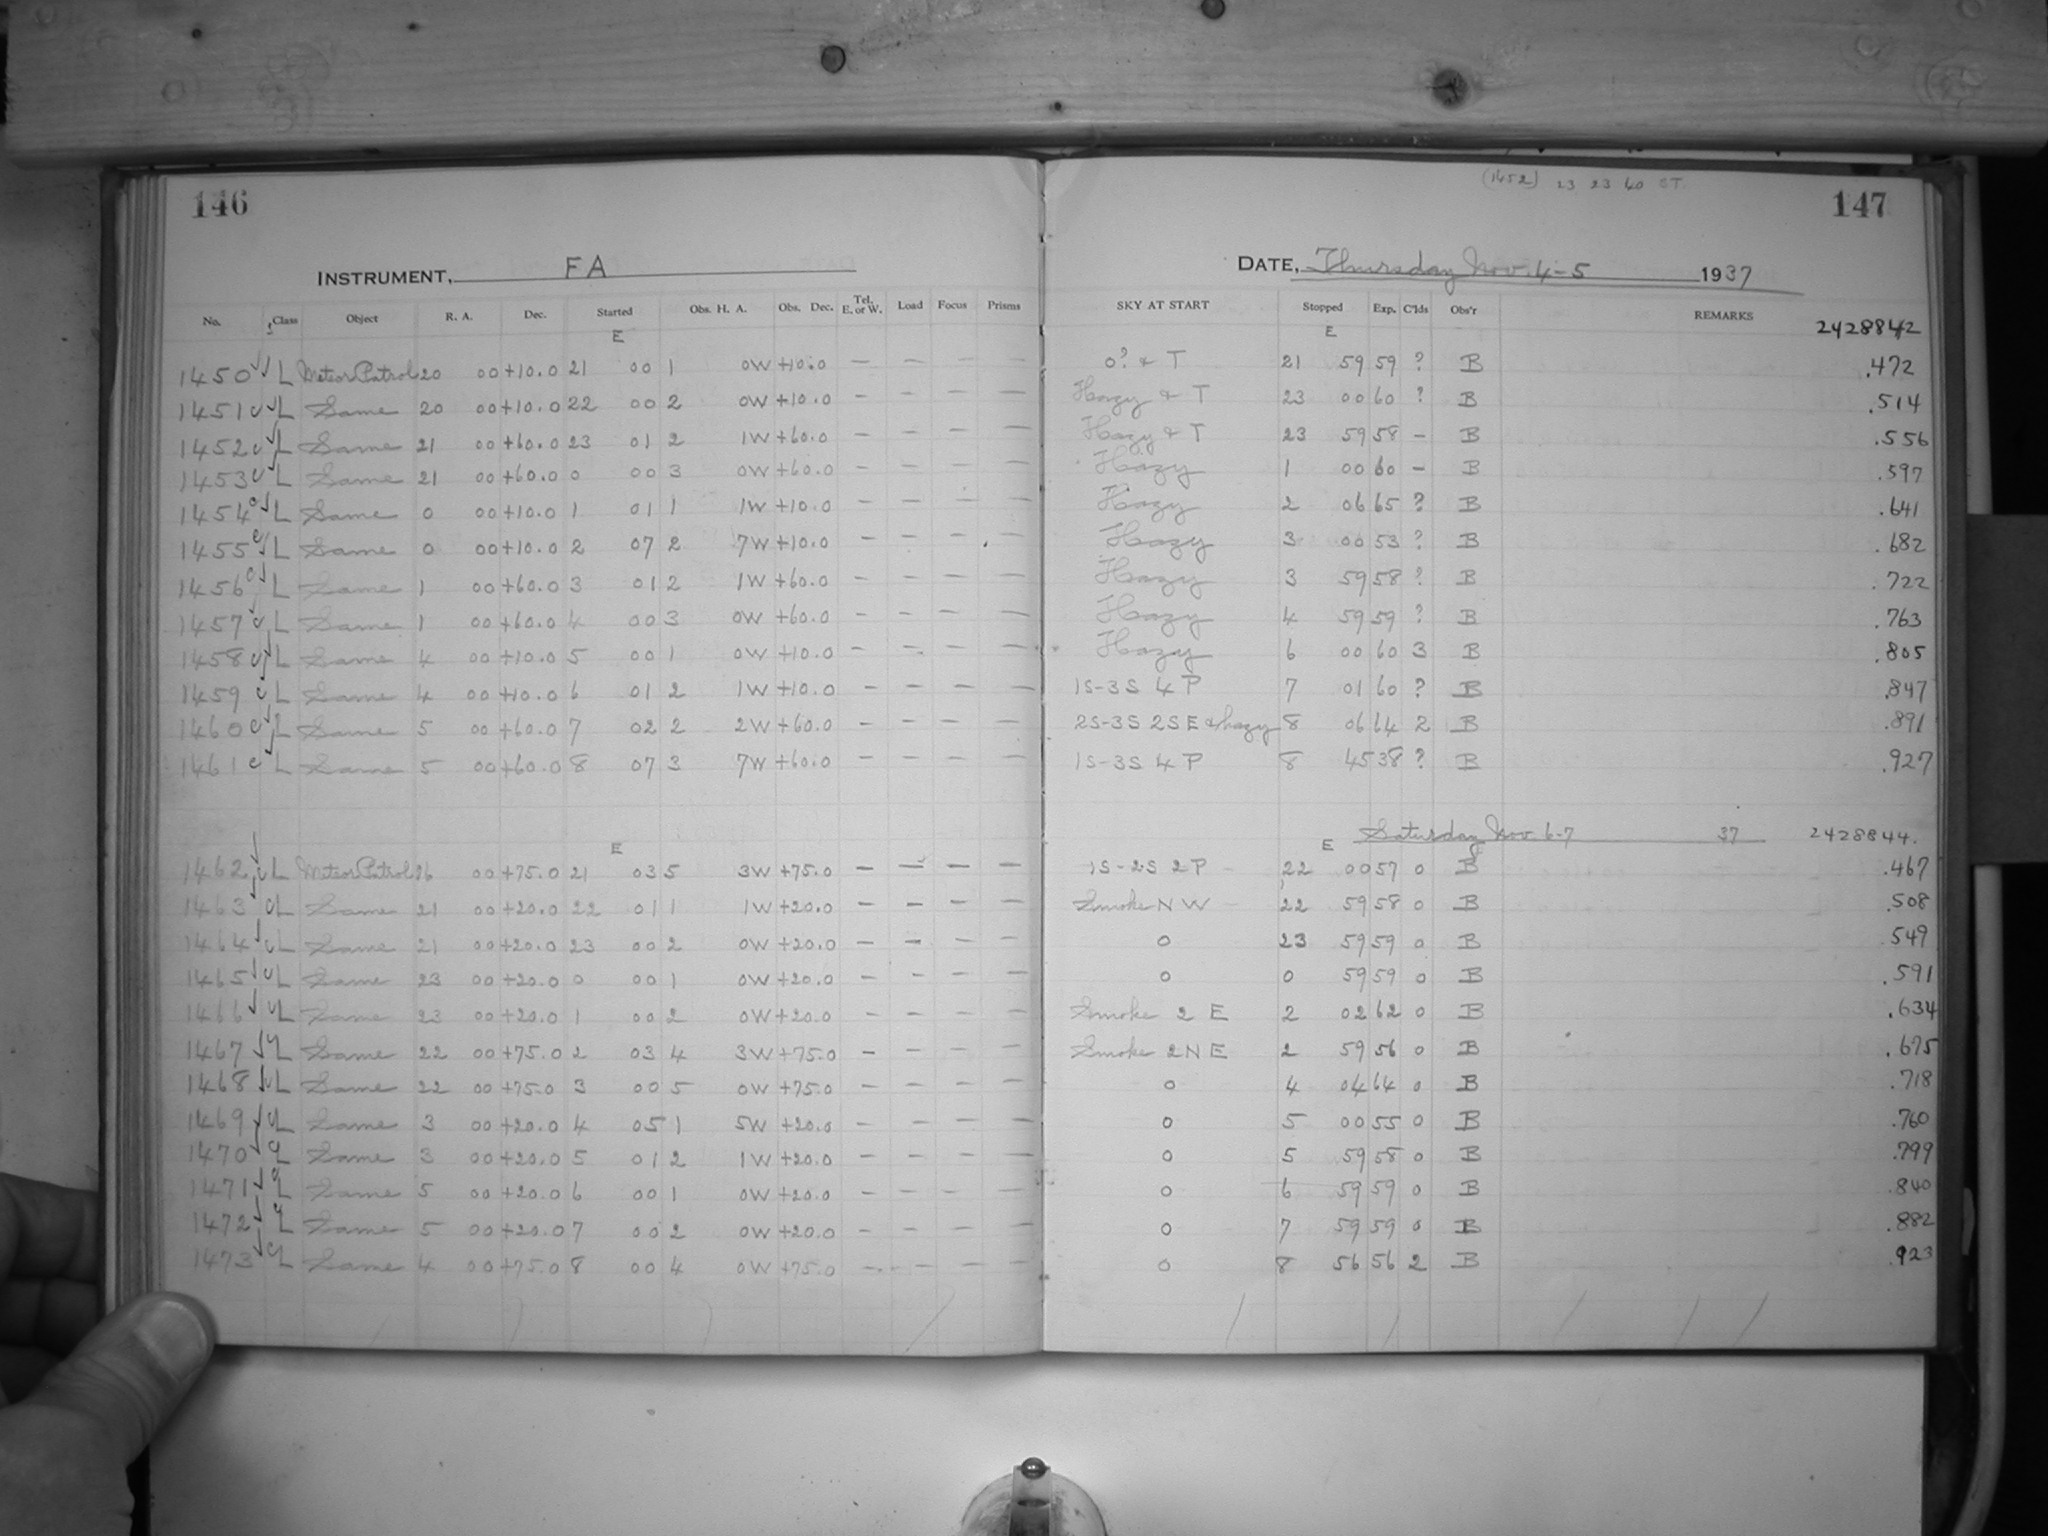 146
INSTRUMENT, FA
No. Class Object R. A. Dec. Started Obs. H. A. Obs. Dec. Tel. E. or W. Load Focus Prisms
E
1450 L Meteor Patrol 20 00 +10.0 21 00 1 0W +10.0 — — — —
1451 L Same 20 00 +10.0 22 00 2 0W +10.0 — — — —
1452 L Same 21 00 +60.0 23 01 2 1W +60.0 — — — —
1453 L Same 21 00 +60.0 0 00 3 0W +60.0 — — — —
1454 L Same 0 00 +10.0 1 01 1 1W +10.0 — — — —
1455 L Same 0 00 +10.0 2 07 2 7W +10.0 — — — —
1456 L Same 1 00 +60.0 3 01 2 1W +60.0 — — — —
1457 L Same 1 00 +60.0 4 00 3 0W +60.0 — — — —
1458 L Same 4 00 +10.0 5 00 1 0W +10.0 — — — —
1459 L Same 4 00 +10.0 6 01 2 1W +10.0 — — — —
1460 L Same 5 00 +60.0 7 02 2 2W +60.0 — — — —
1461 L Same 5 00 +60.0 8 07 3 7W +60.0 — — — —
E
1462 L Meteor Patrol 00 +75.0 21 03 5 3W +75.0 — — — —
1463 L Same 21 00 +20.0 22 01 1 1W +20.0 — — — —
1464 L Same 21 00 +20.0 23 00 2 0W +20.0 — — — —
1465 L Same 23 00 +20.0 0 00 1 0W +20.0 — — — —
1466 L Same 23 00 +20.0 1 00 2 0W +20.0 — — — —
1467 L Same 22 00 +75.0 2 03 4 3W +75.0 — — — —
1468 L Same 22 00 +75.0 3 00 5 0W +75.0 — — — —
1469 L Same 3 00 +20.0 4 05 1 5W +20.0 — — — —
1470 L Same 3 00 +20.0 5 01 2 1W +20.0 — — — —
1471 L Same 5 00 +20.0 6 00 1 0W +20.0 — — — —
1472 L Same 5 00 +20.0 7 00 2 0W +20.0 — — — —
1473 L Same 4 00 +75.0 8 00 4 0W +75.0 — — — —
(1452) 23 23 40 ST
147
DATE, Thursday Nov. 4-5 1937
SKY AT START Stopped Exp. C'lds Obs'r REMARKS
E 2428842
0? & T 21 59 59 ? B .472
Hazy & T 23 00 60 ? B .514
Hazy & T 23 59 58 — B .556
Hazy 1 00 60 — B .597
Hazy 2 06 65 ? B .641
Hazy 3 00 53 ? B .682
Hazy 3 59 58 ? B .722
Hazy 4 59 59 ? B .763
Hazy 6 00 60 3 B .805
1S-3S 4 P 7 01 60 ? B .847
2S-3S 2SE & hazy 8 06 64 2 B .891
1S-3S 4 P 8 45 38 ? B .927
E Saturday Nov. 6-7 37 2428844.
1S-2S 2P 22 00 57 0 B .467
Smoke NW 22 59 58 0 B .508
0 23 59 59 0 B .549
0 0 59 59 0 B .591
Smoke 2 E 2 02 62 0 B .634
Smoke 2NE 2 59 56 0 B .675
0 4 04 64 0 B .718
0 5 00 55 0 B .760
0 5 59 58 0 B .799
0 6 59 59 0 B .840
0 7 59 59 0 B .882
0 8 56 56 2 B .923